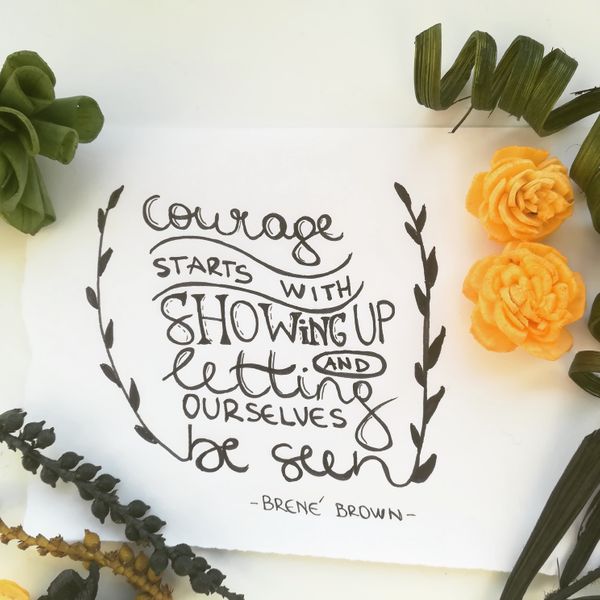 courage
STARTS WITH
SHOWING UP
AND
letting
OURSELVES
be seen
-BRENÉ BROWN-